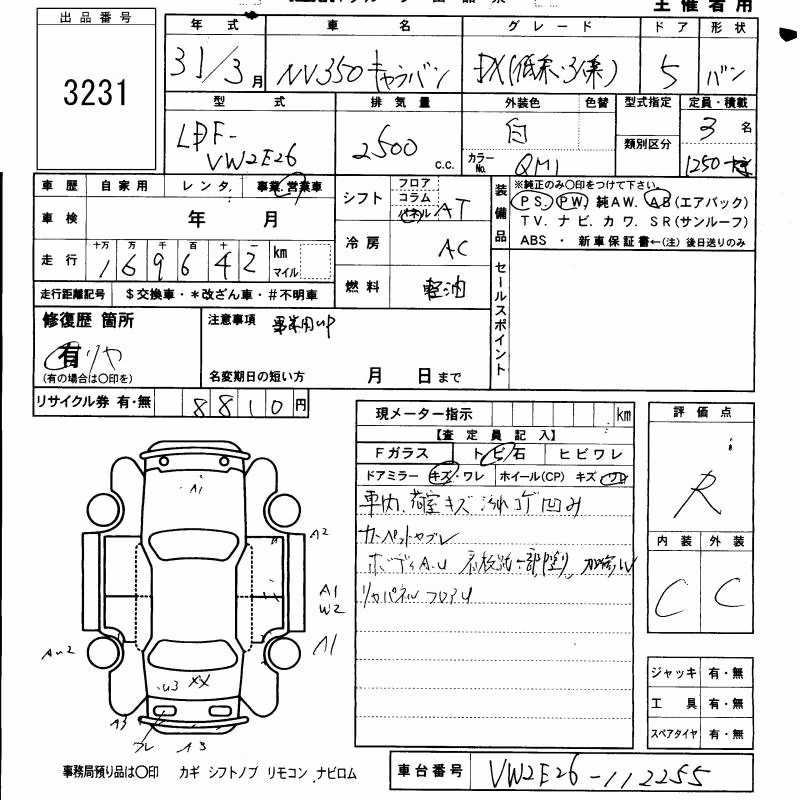 主催者用
出品番号
3231
年式 車名 グレード ドア 形状
31/3月 NV350キャラバン DX(低床・3/6条) 5 バン
型式 排気量 外装色 色替 型式指定 定員・積載
LDF-VW2E26 2500 c.c. 白 カラーNo. QM1 類別区分 3名 1250
車歴 自家用 レンタ. 事業.営業車
車検 年 月
走行 十万 万 千 百 十 一
169642 km マイル
走行距離記号 $交換車・*改ざん車・#不明車
シフト フロア コラム パネル AT
冷房 AC
燃料 軽油
装備品 ※純正のみ○印をつけて下さい。
PS. PW. 純AW. AB(エアバック)
TV. ナビ. カワ. SR(サンルーフ)
ABS ・ 新車保証書←(注) 後日送りのみ
セールスポイント
修復歴 箇所
有 リヤ
(有の場合は○印を)
注意事項 事業用UP
名変期日の短い方 月 日まで
リサイクル券 有・無 8810円
現メーター指示 km
【査定員記入】
Fガラス トビ石 ヒビワレ
ドアミラー キズ・ワレ ホイール(CP) キズ ワレ
車内、荷室キズ 汚れ コゲ 凹み
カーペットヤブレ
ボディA.U 看板跡 一部塗り
リヤパネル フロアU
評価点
R
内装 外装
C C
ジャッキ 有・無
工具 有・無
スペアタイヤ 有・無
A1
A2
A1
W2
A1
AU2
U3 XX
A3
ワレ
A3
事務局預り品は○印 カギ シフトノブ リモコン ナビロム
車台番号 VW2E26-112255